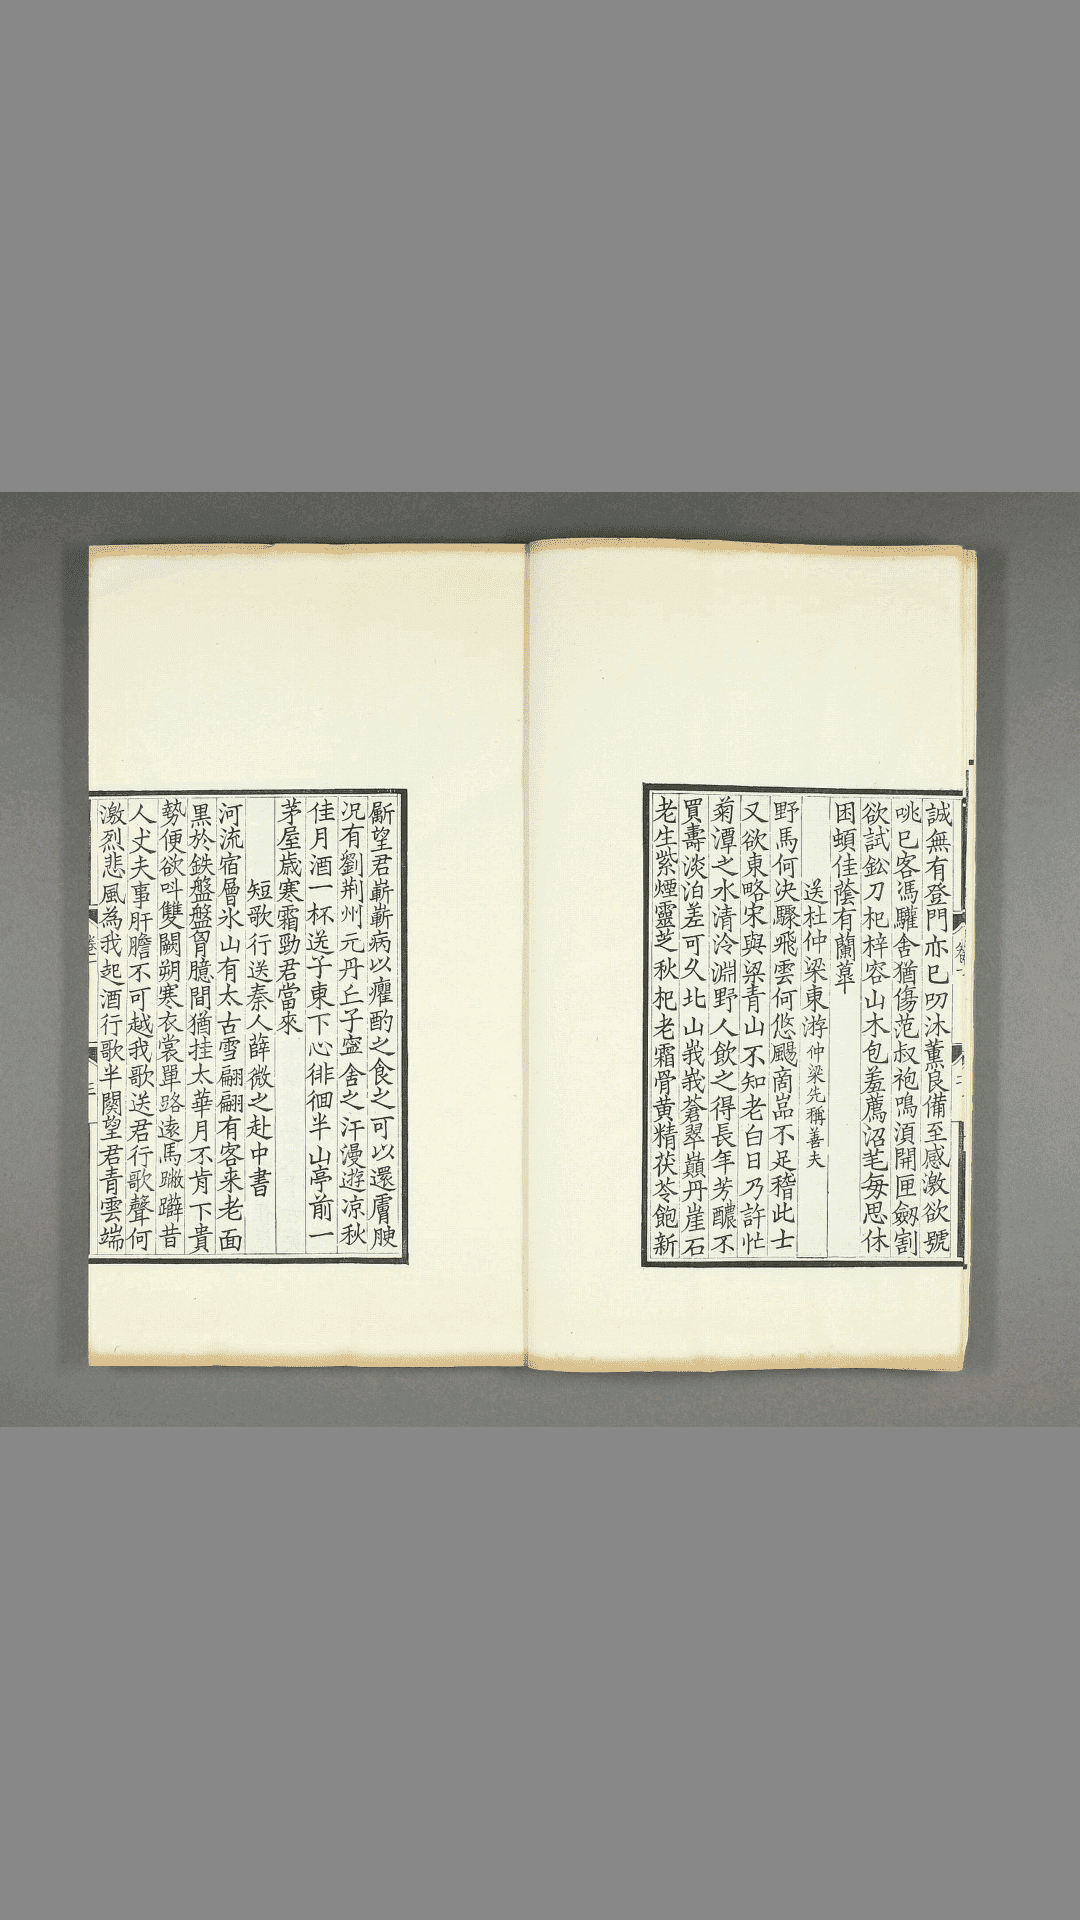 誠無有登門亦巳叨沐薰良備至感激欲號
咷巳客馮驩舍猶傷范叔袍鳴湏開匣劔割
欲試鈆刀杞梓容山木包羞薦沼芼每思休
困頓佳䕃有蘭臯
送杜仲梁東游仲梁先稱善夫
野馬何决驟飛雲何悠颺啇嵓不足稽此士
又欲東略宋與梁青山不知老白日乃許忙
菊潭之水清泠淵野人飲之得長年芳醲不
買壽淡泊差可久北山峩峩蒼翠巔丹崖石
老生紫煙靈芝秋杞老霜骨黄精茯苓飽新
斸望君嶄嶄病以癯酌之食之可以還膚腴
况有劉荆州元丹丘子寍舍之汗漫遊凉秋
佳月酒一杯送子東下心徘徊半山亭前一
茅屋歳寒霜勁君當來
短歌行送秦人薛微之赴中書
河流宿層氷山有太古雪翩翩有客来老面
黒於鉄盤盤胷臆間猶挂太華月不肯下貴
勢便欲叫雙闕朔寒衣裳單路逺馬蹩躃昔
人丈夫事肝膽不可越我歌送君行歌聲何
激烈悲風為我起酒行歌半闋望君青雲端
卷一
三